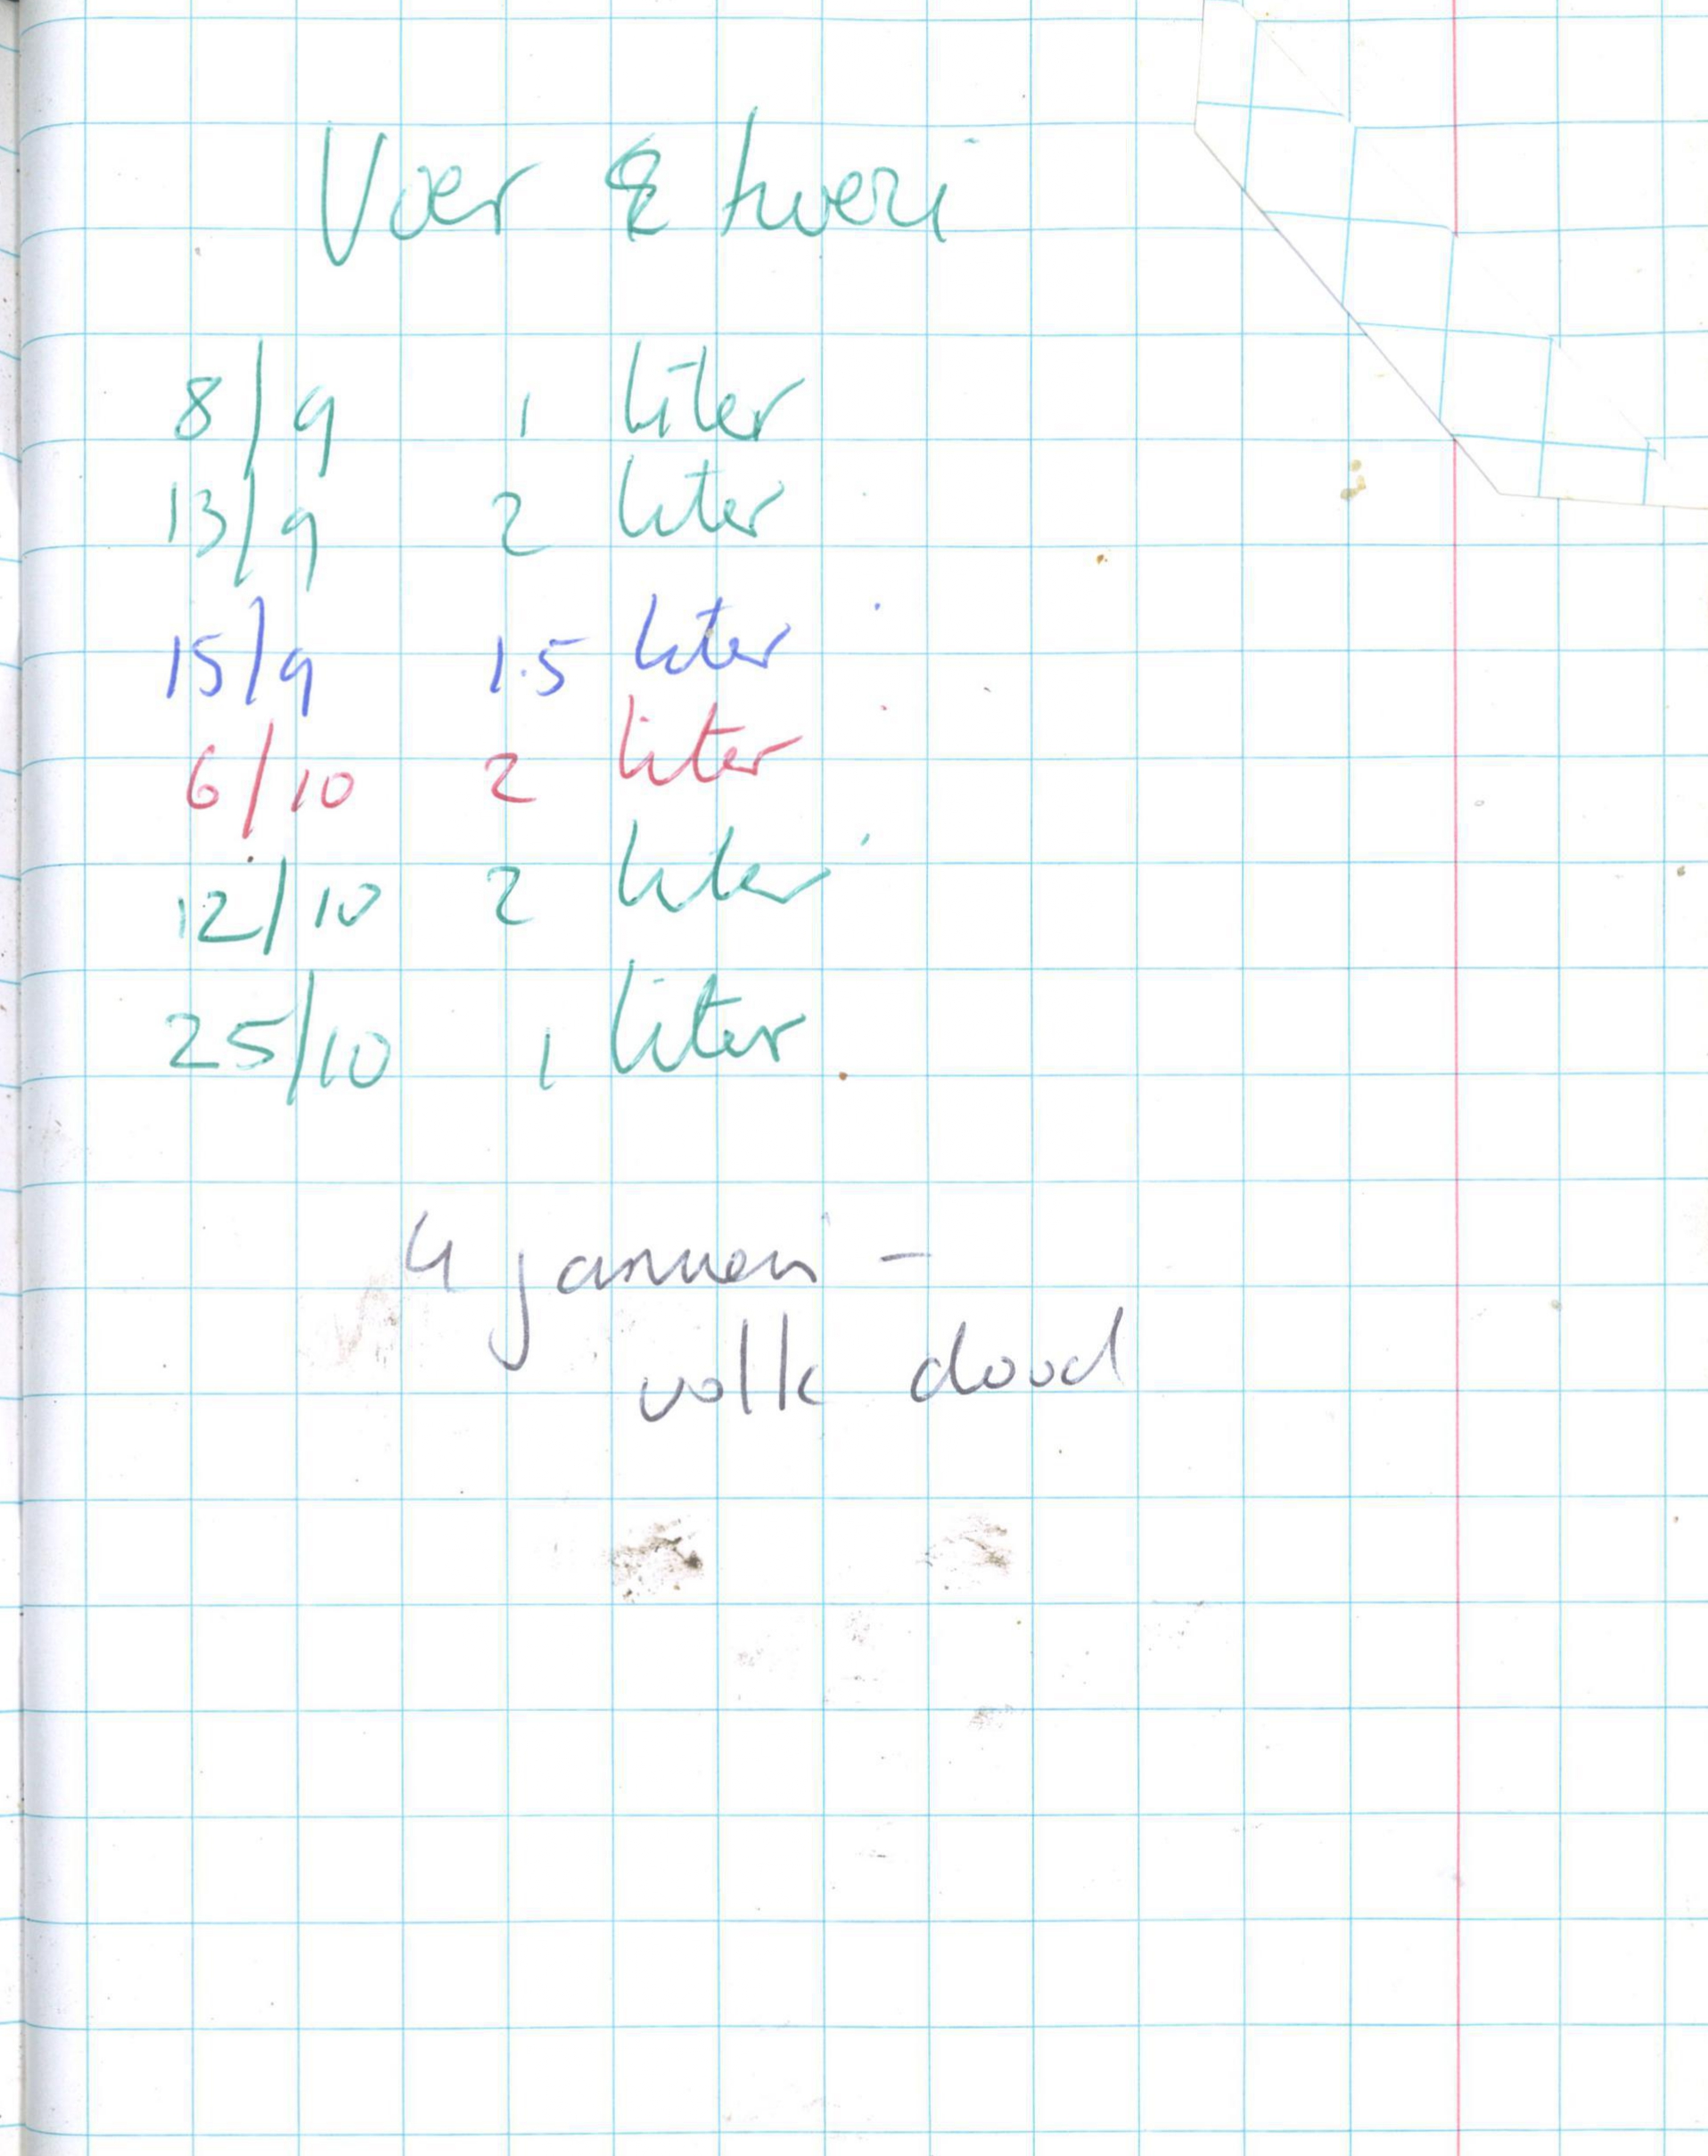 Voer
8/9 1 liter
13/9 2 liter
15/9 1.5 liter
6/10 2 liter
12/10 2 liter
25/10 1 liter
4 januari -
volk dood